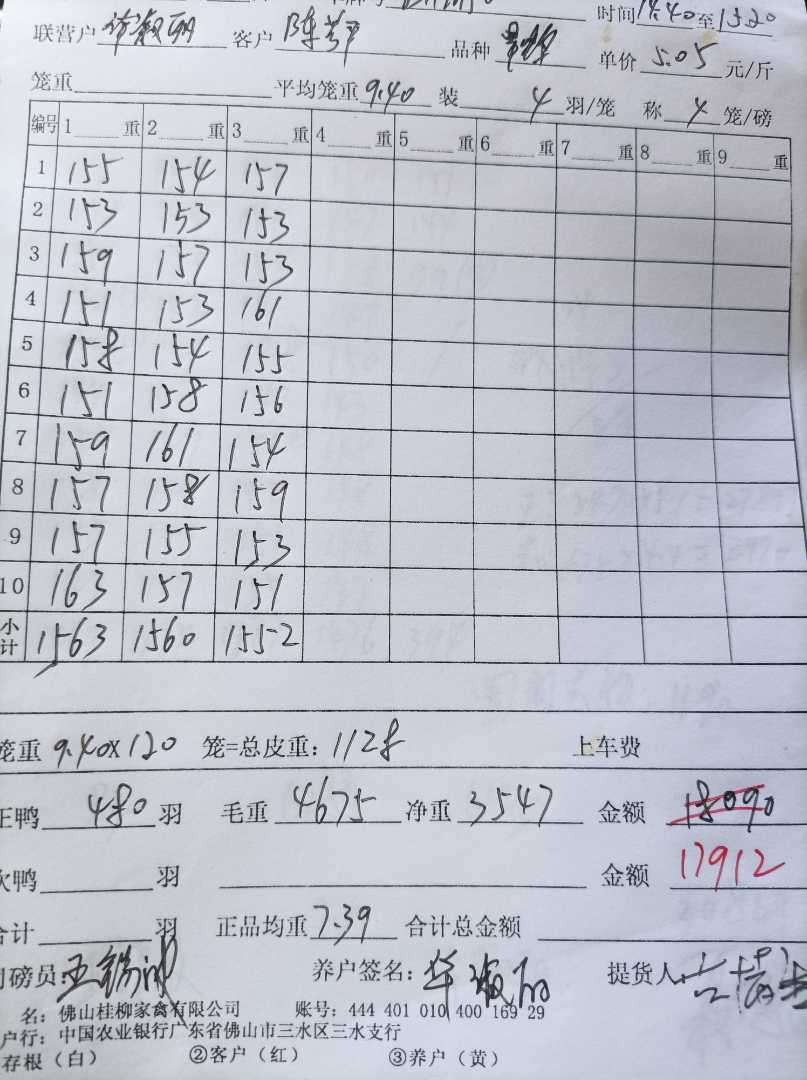 时间14.40至1520
联营户 华淑丽 客户 陈 品种 单价 5.05 元/斤
笼重 平均笼重 9.40 装 4 羽/笼 称 4 笼/磅
编号 1 重 2 重 3 重 4 重 5 重 6 重 7 重 8 重 9 重
1 155 154 157
2 153 153 153
3 159 157 153
4 151 153 161
5 158 154 155
6 151 158 156
7 159 161 154
8 157 158 159
9 157 155 153
10 163 157 151
小计 1563 1560 1552
笼重 9.40×120 笼=总皮重: 1128 上车费
正鸭 480 羽 毛重 4675 净重 3547 金额 18090
次鸭 羽 金额 17912
合计 羽 正品均重 7.39 合计总金额
司磅员: 养户签名: 华淑丽 提货人:
名: 佛山桂柳家禽有限公司 账号: 444 401 010 400 169 29
户行: 中国农业银行广东省佛山市三水区三水支行
存根(白) ②客户(红) ③养户(黄)